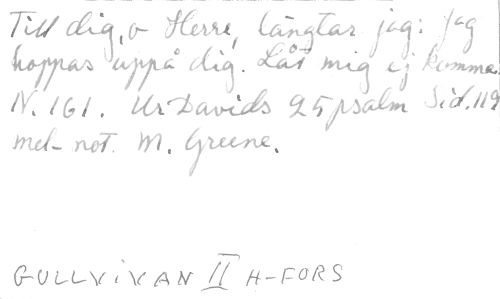 Till dig, o Herre, längtar jag: Jag
hoppas uppå dig. Låt mig ej komma.
N. 161. Ur Davids 25 psalm Sid. 119
mel- not. M. Greene.
GULLVIVAN II H-FORS